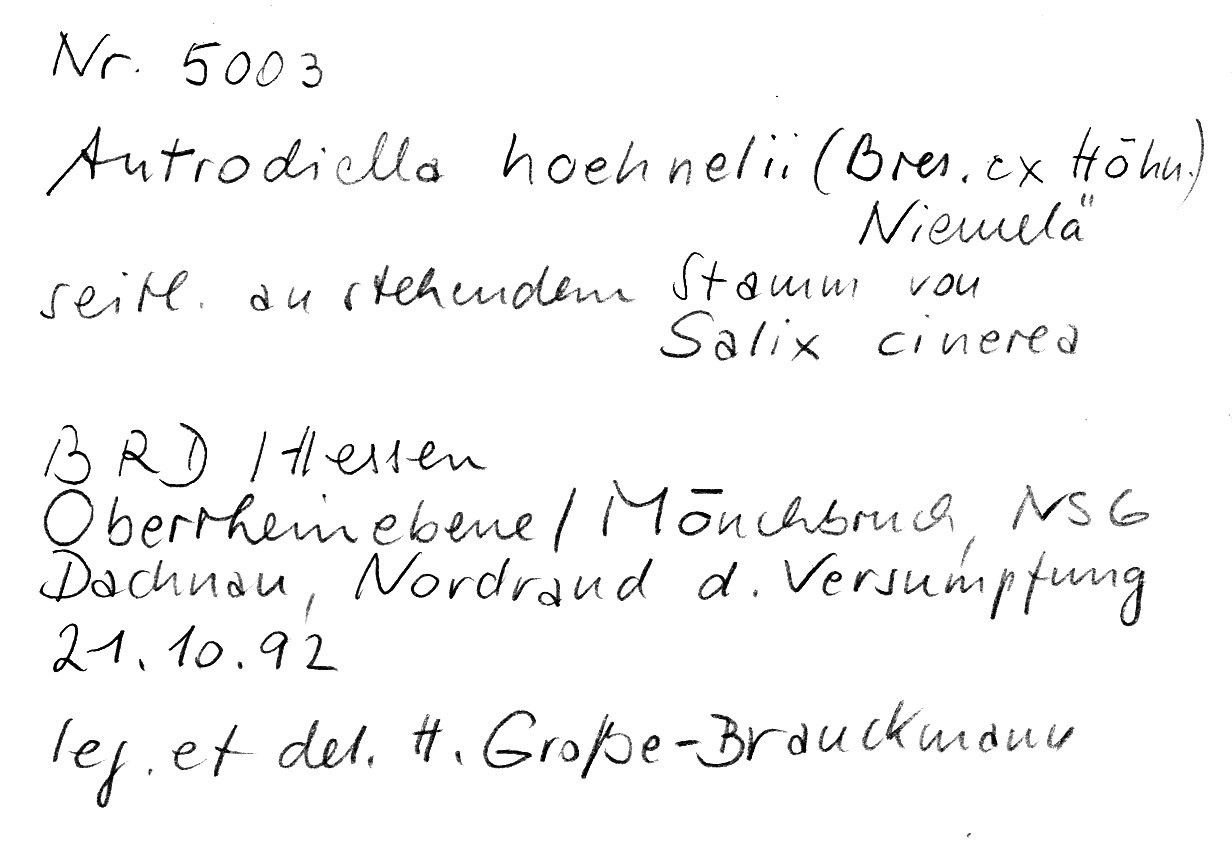 Nr. 5003
Antrodiella hoehnelii (Bres. ex Höhn.)
Niemelä
seitl. an stehendem Stamm von
Salix cinerea
BRD / Hessen
Oberrheinebene / Mönchbruch, NSG
Dachnau, Nordrand d. Versumpfung
21.10.92
leg. et det. H. Große-Brauckmann